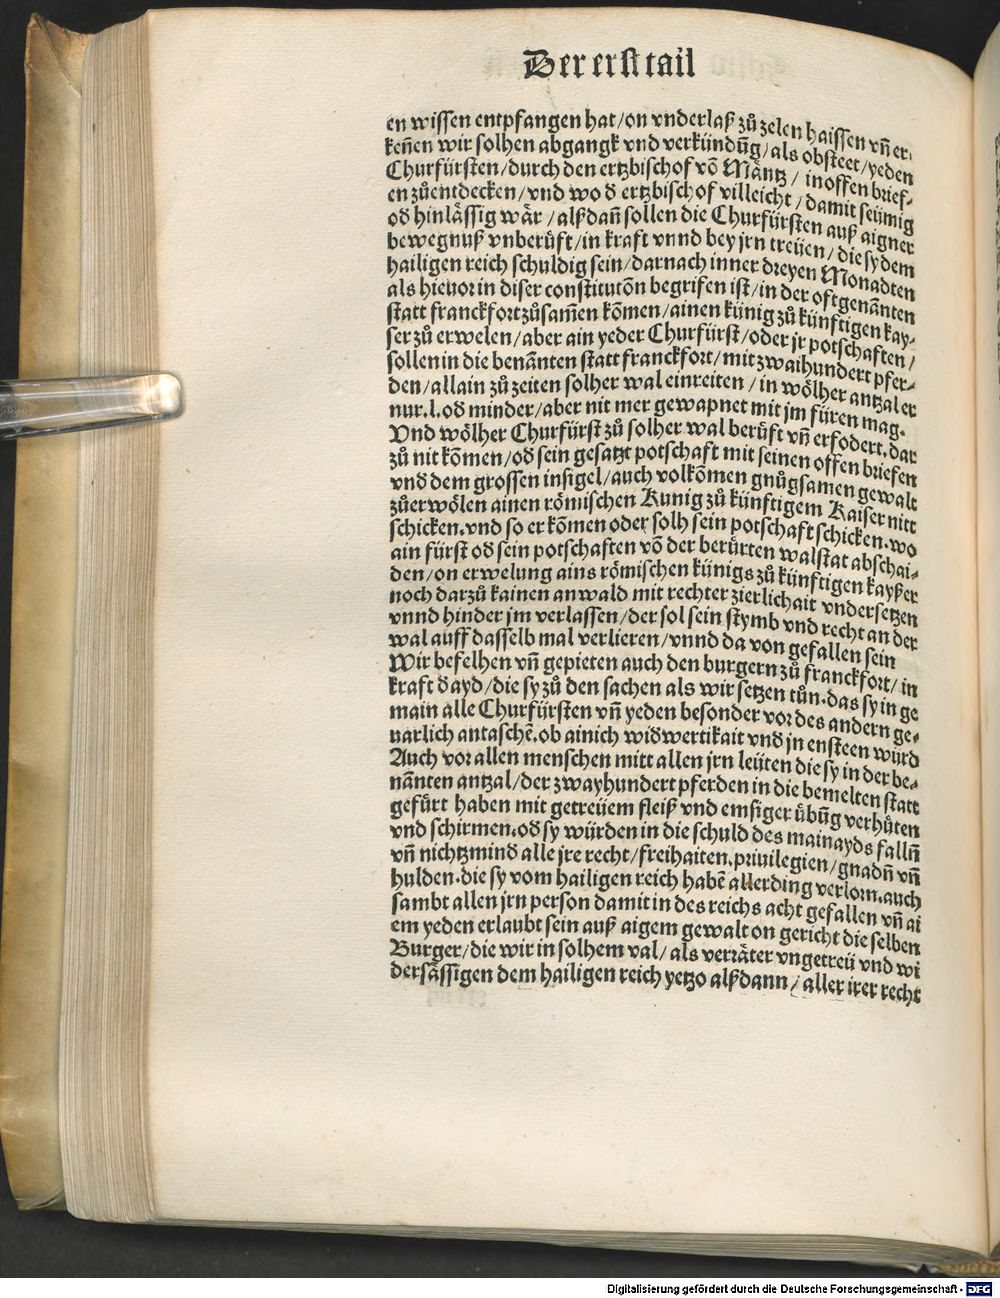 Der erst tail
en wissen entpfangen hat/on vnderlaß zů zelen haissen vñ er-
keñen wir solhen abgangk vnd verkündūg/als obsteet/yeden
Churfürsten/durch den ertzbischof võ Mäntz/in offen brief-
en zůentdecken/vnd wo đ ertzbischof villeicht/damit seümig
ođ hinlässig wär/alßdañ sollen die Churfürsten auß aigner
bewegnuß vnberüft/in kraft vnnd bey jrn treüen/die sy dem
hailigen reich schuldig sein/darnach inner dreyen Monadten
als hieuor in diser constitutõn begrifen ist/in der oftgenãnten
statt franckfort zůsam̄en kõmen/ainen künig zů künftigen kay-
ser zů erwelen/aber ain yeder Churfürst/oder jr potschaften/
sollen in die benãnten statt franckfort/mit zwaihundert pfer-
den/allain zů zeiten solher wal einreiten/in wölher antzal er
nur.l.ođ minder/aber nit mer gewapnet mit jm füren mag.
Vnd wölher Churfürst zů solher wal berüft vñ erfodert.dar
zů nit kõmen/ođ sein gesatzt potschaft mit seinen offen briefen
vnd dem grossen insigel/auch volkõmen gnůgsamen gewalt
zůerwölen ainen römischen Kunig zů künftigem Kaiser nitt
schicken.vnd so er kõmen oder solh sein potschaft schicken.wo
ain fürst ođ sein potschaften võ der berürten walstat abschai-
den/on erwelung ains römischen künigs zů künftigen kayßer
noch darzů kainen anwald mit rechter zierlichait vndersetzen
vnnd hinder jm verlassen/der sol sein stymb vnd recht an der
wal auff dasselb mal verlieren/vnnd da von gefallen sein
Wir befelhen vñ gepieten auch den burgern zů franckfort/in
kraft đ ayd/die sy zů den sachen als wir setzen tůn.das sy in ge
main alle Churfürsten vñ yeden besonder vor des andern ge-
uarlich antaschē.ob ainich widwertikait vnd jn ensteen würd
Auch vor allen menschen mitt allen jrn leüten die sy in der be-
nãnten antzal/der zwayhundert pferden in die bemelten statt
gefürt haben mit getreüem fleiß vnd emsiger übūg verhüten
vnd schirmen.ođ sy würden in die schuld des mainayds fallñ
vñ nichtzminđ alle jre recht/freihaiten.priuilegien/gnadñ vñ
hulden.die sy vom hailigen reich habē allerding verlorn.auch
sambt allen jrn person damit in des reichs acht gefallen vñ ai
em yeden erlaubt sein auß aigem gewalt on gericht die selben
Burger/die wir in solhem val/als verräter vngetreü vnd wi
dersässigen dem hailigen reich yetzo alßdann/aller irer recht
Digitalisierung gefördert durch die Deutsche Forschungsgemeinschaft - DFG